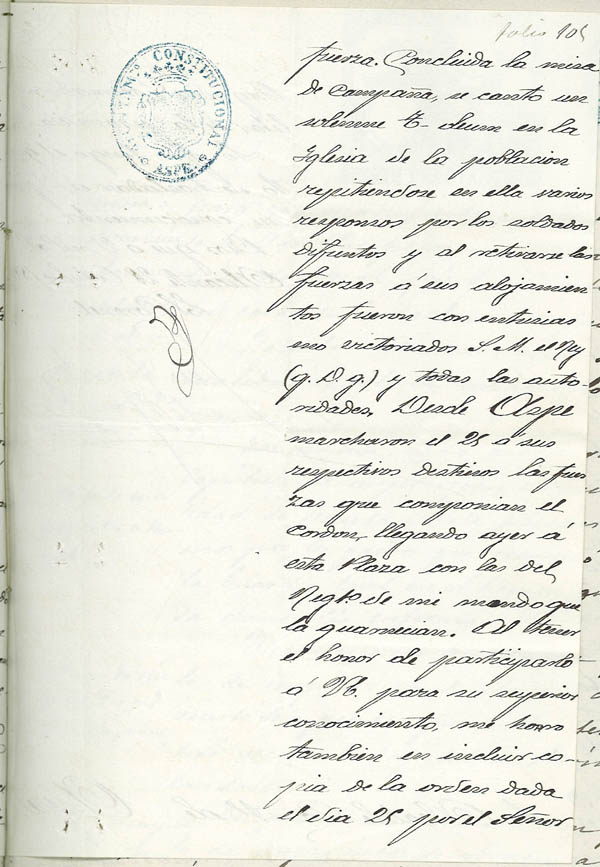 folio 105
AYUNTAMTO CONSTITUCIONAL
ASPE
fuerza. Concluida la misa
de Campaña, se canto un
solemne T- deum en la
Iglesia de la poblacion
repitiendose en ella varios
responsos por los soldados
difuntos y al retirarse las
fuerzas á sus alojamien
tos fueron con entusias
mo victoriados S. M. el Rey
(q. D. g.) y todas las auto-
ridades. Desde Aspe
marcharon el 25 á sus
respectivos destinos las fuer
zas que componian el
Cordon, llegando ayer á
esta Plaza con las del
Regto. de mi mando que
la guarnecian. Al tener
el honor de participarlo
á VE. para su superior
conocimiento, me honro
tambien en incluir co-
pia de la orden dada
el dia 25 por el Señor